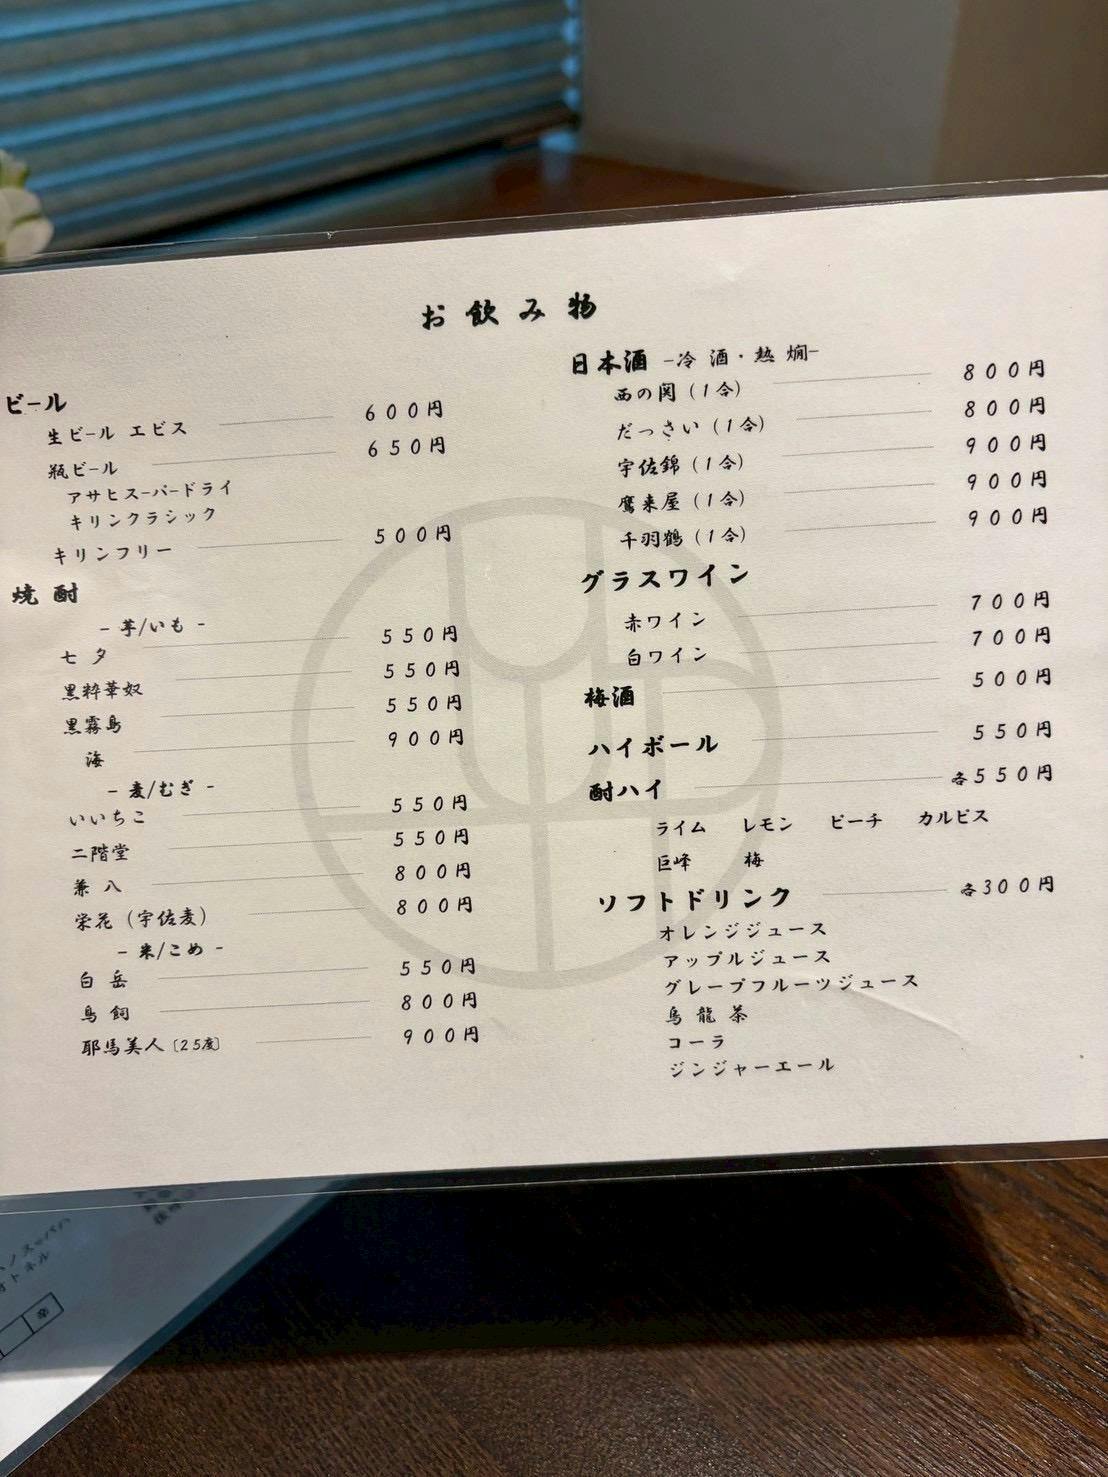 お飲み物
ビール
生ビール エビス 600円
瓶ビール 650円
アサヒスーパードライ
キリンクラシック
キリンフリー 500円
焼酎
- 芋/いも -
七夕 550円
黒粋華奴 550円
黒霧島 550円
海 900円
- 麦/むぎ -
いいちこ 550円
二階堂 550円
兼八 800円
栄花（宇佐麦） 800円
- 米/こめ -
白岳 550円
鳥飼 800円
耶馬美人〔25度〕 900円
日本酒 -冷酒・熱燗-
西の関（1合） 800円
だっさい（1合） 800円
宇佐錦（1合） 900円
鷹来屋（1合） 900円
千羽鶴（1合） 900円
グラスワイン
赤ワイン 700円
白ワイン 700円
梅酒 500円
ハイボール 550円
酎ハイ 各550円
ライム レモン ピーチ カルピス
巨峰 梅
ソフトドリンク 各300円
オレンジジュース
アップルジュース
グレープフルーツジュース
烏龍茶
コーラ
ジンジャーエール